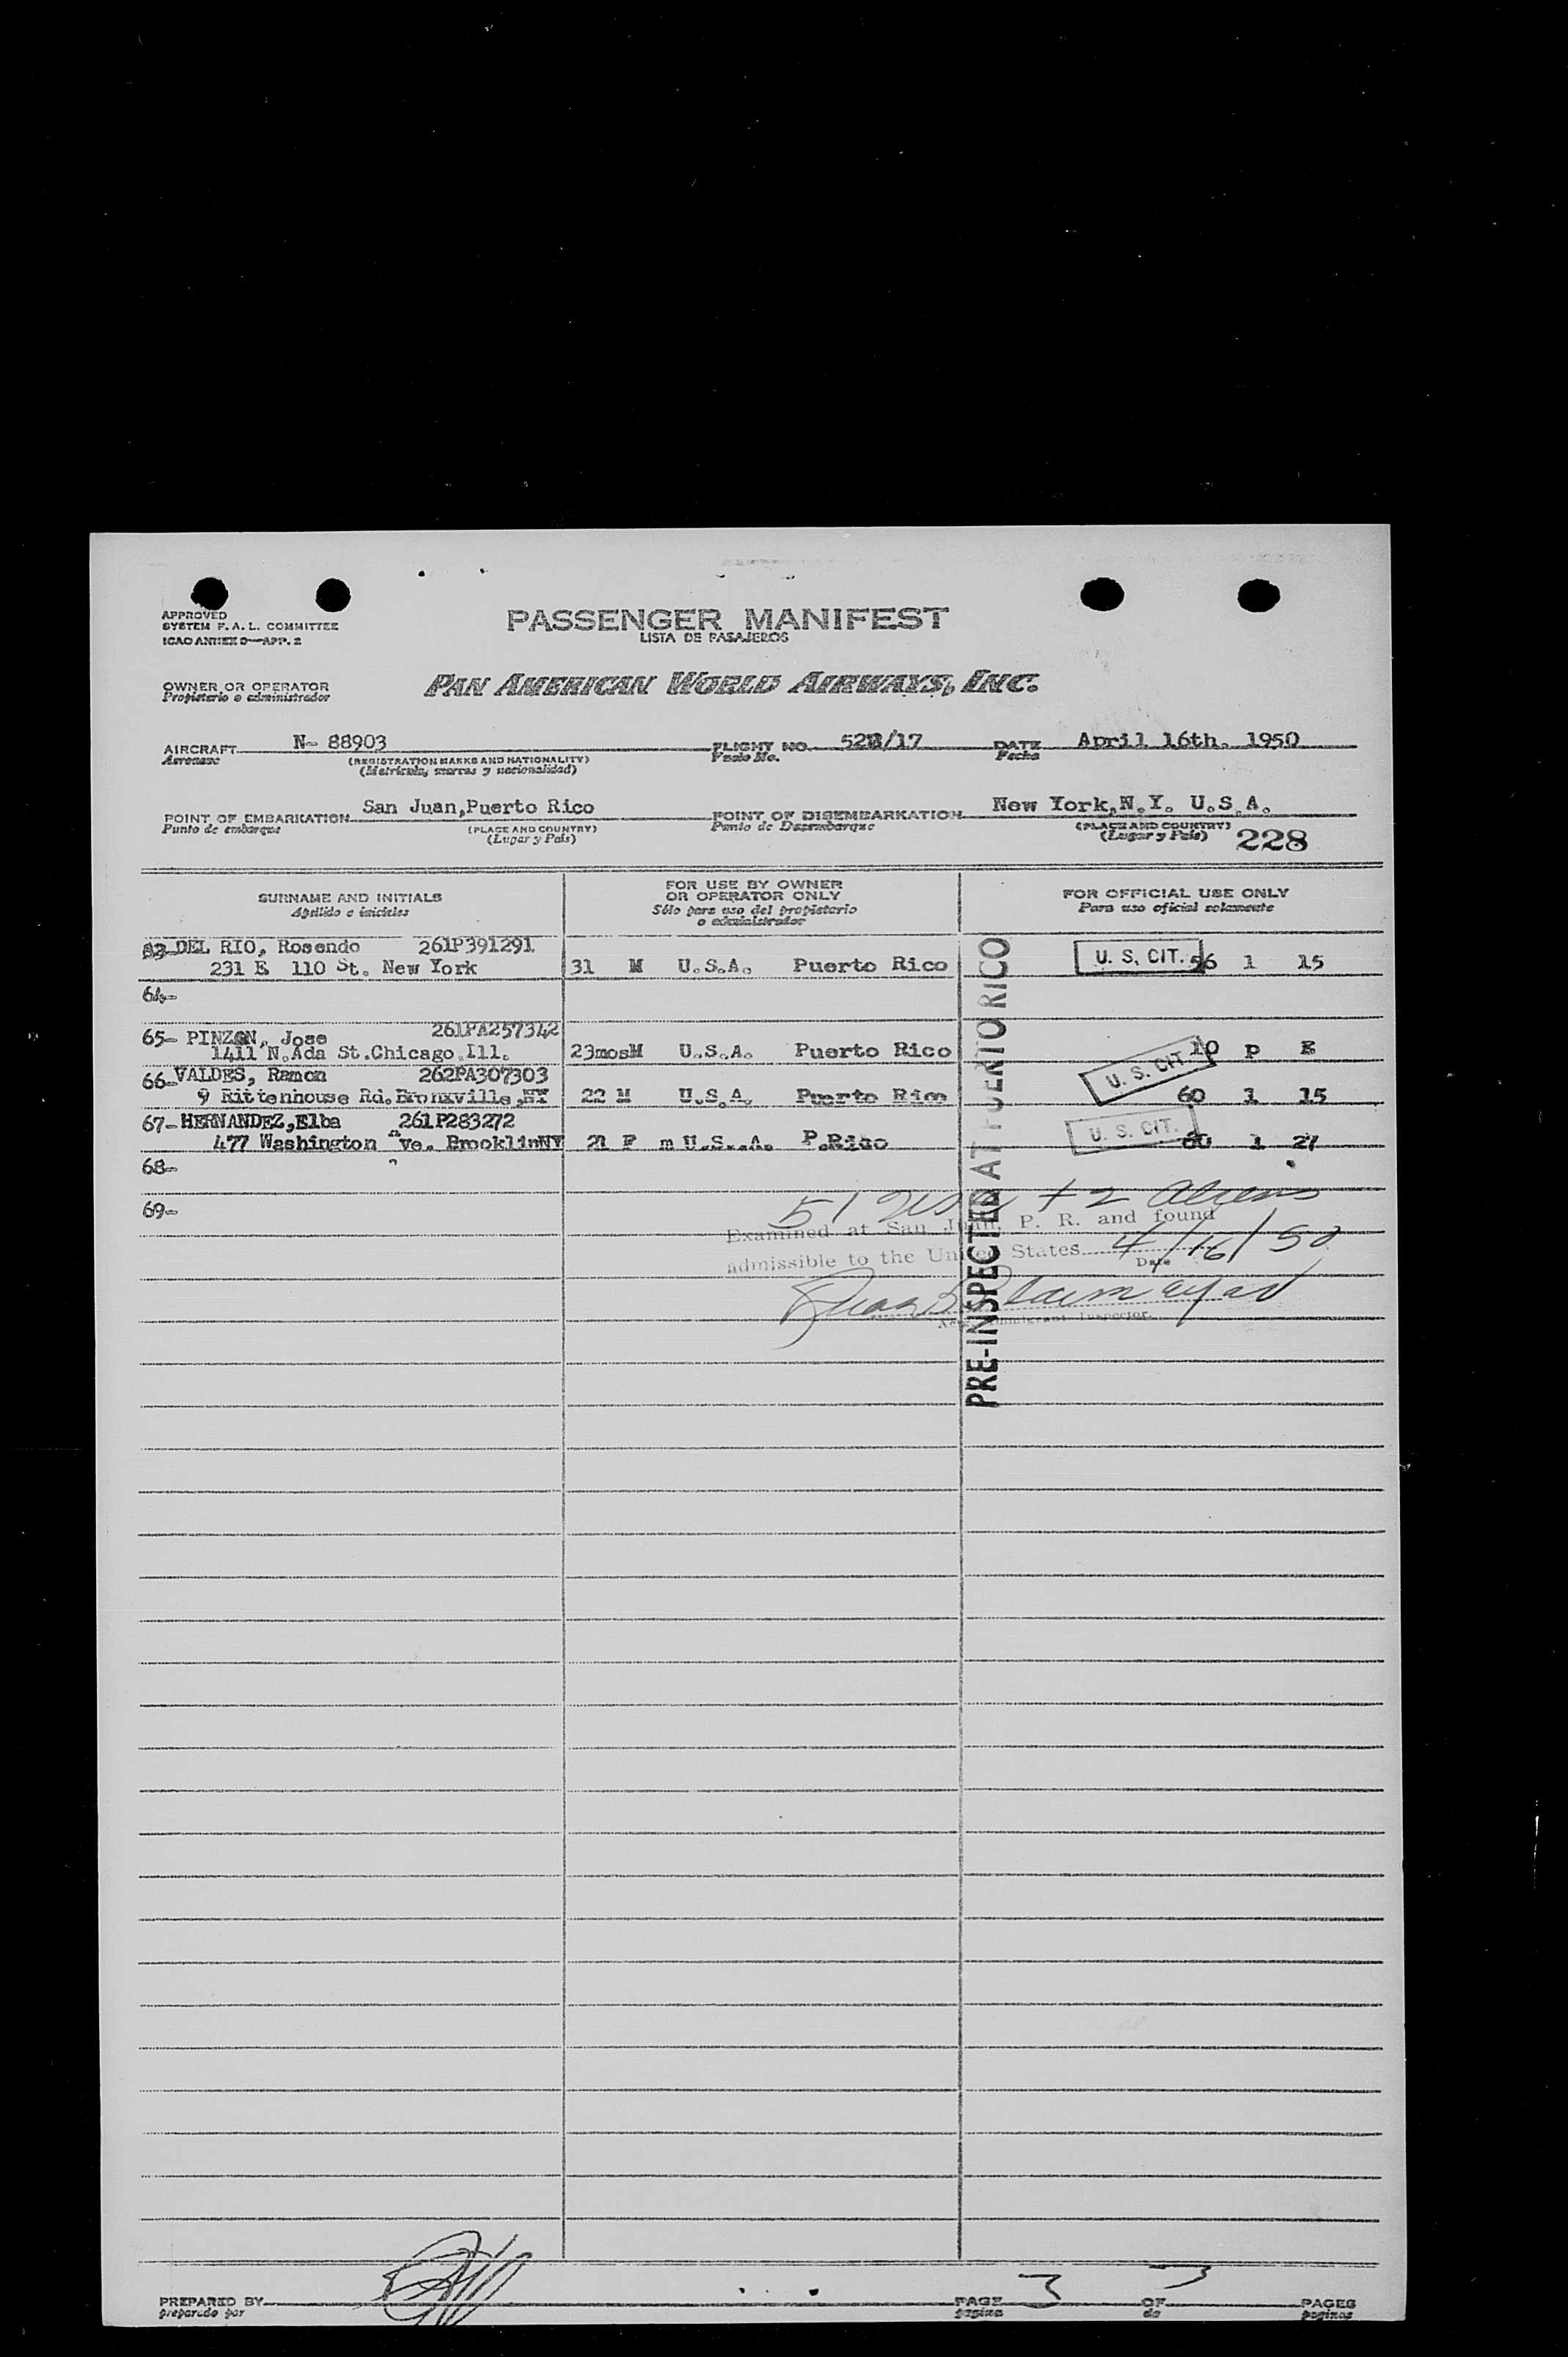 APPROVED
SYSTEM F. A. L. COMMITTEE
ICAO ANNEX 9—APP. 2
PASSENGER MANIFEST
LISTA DE PASAJEROS
OWNER OR OPERATOR
Propietario o administrador
PAN AMERICAN WORLD AIRWAYS, INC.
AIRCRAFT N- 88903 FLIGHT NO. 528/17 DATE April 16th. 1950
Aeronave (REGISTRATION MARKS AND NATIONALITY) Vuelo No. Fecha
(Matrícula, marcas y nacionalidad)
POINT OF EMBARKATION San Juan,Puerto Rico POINT OF DISEMBARKATION New York,N.Y. U.S.A.
Punto de embarque (PLACE AND COUNTRY) Punto de Desembarque (PLACE AND COUNTRY)
(Lugar y País) (Lugar y País) 228
SURNAME AND INITIALS FOR USE BY OWNER OR OPERATOR ONLY FOR OFFICIAL USE ONLY
Apellido e iniciales Sólo para uso del propietario o administrador Para uso oficial solamente
63-DEL RIO, Rosendo 261P391291
231 E 110 St. New York 31 M U.S.A. Puerto Rico U. S. CIT. 56 1 15
64-
65- PINZON, Jose 261PA257342
1411 N.Ada St.Chicago.Ill. 23mosM U.S.A. Puerto Rico U. S. CIT. 10 P E
66-VALDES, Ramon 262PA307303
9 Rittenhouse Rd.Bronxville,NY 22 M U.S.A. Puerto Rico 60 1 15
67-HERNANDEZ,Elba 261P283272
477 Washington Ave. BrooklinNY 21 F m U.S.A. P.Rico U. S. CIT. 60 1 27
68-
69-
PRE-INSPECTED AT PUERTO RICO
51 + 2 Aliens
Examined at San Juan, P. R. and found
admissible to the United States 4/16/50
Date
Immigrant Inspector.
PREPARED BY PAGE 3 OF 3 PAGES
preparado por página de páginas